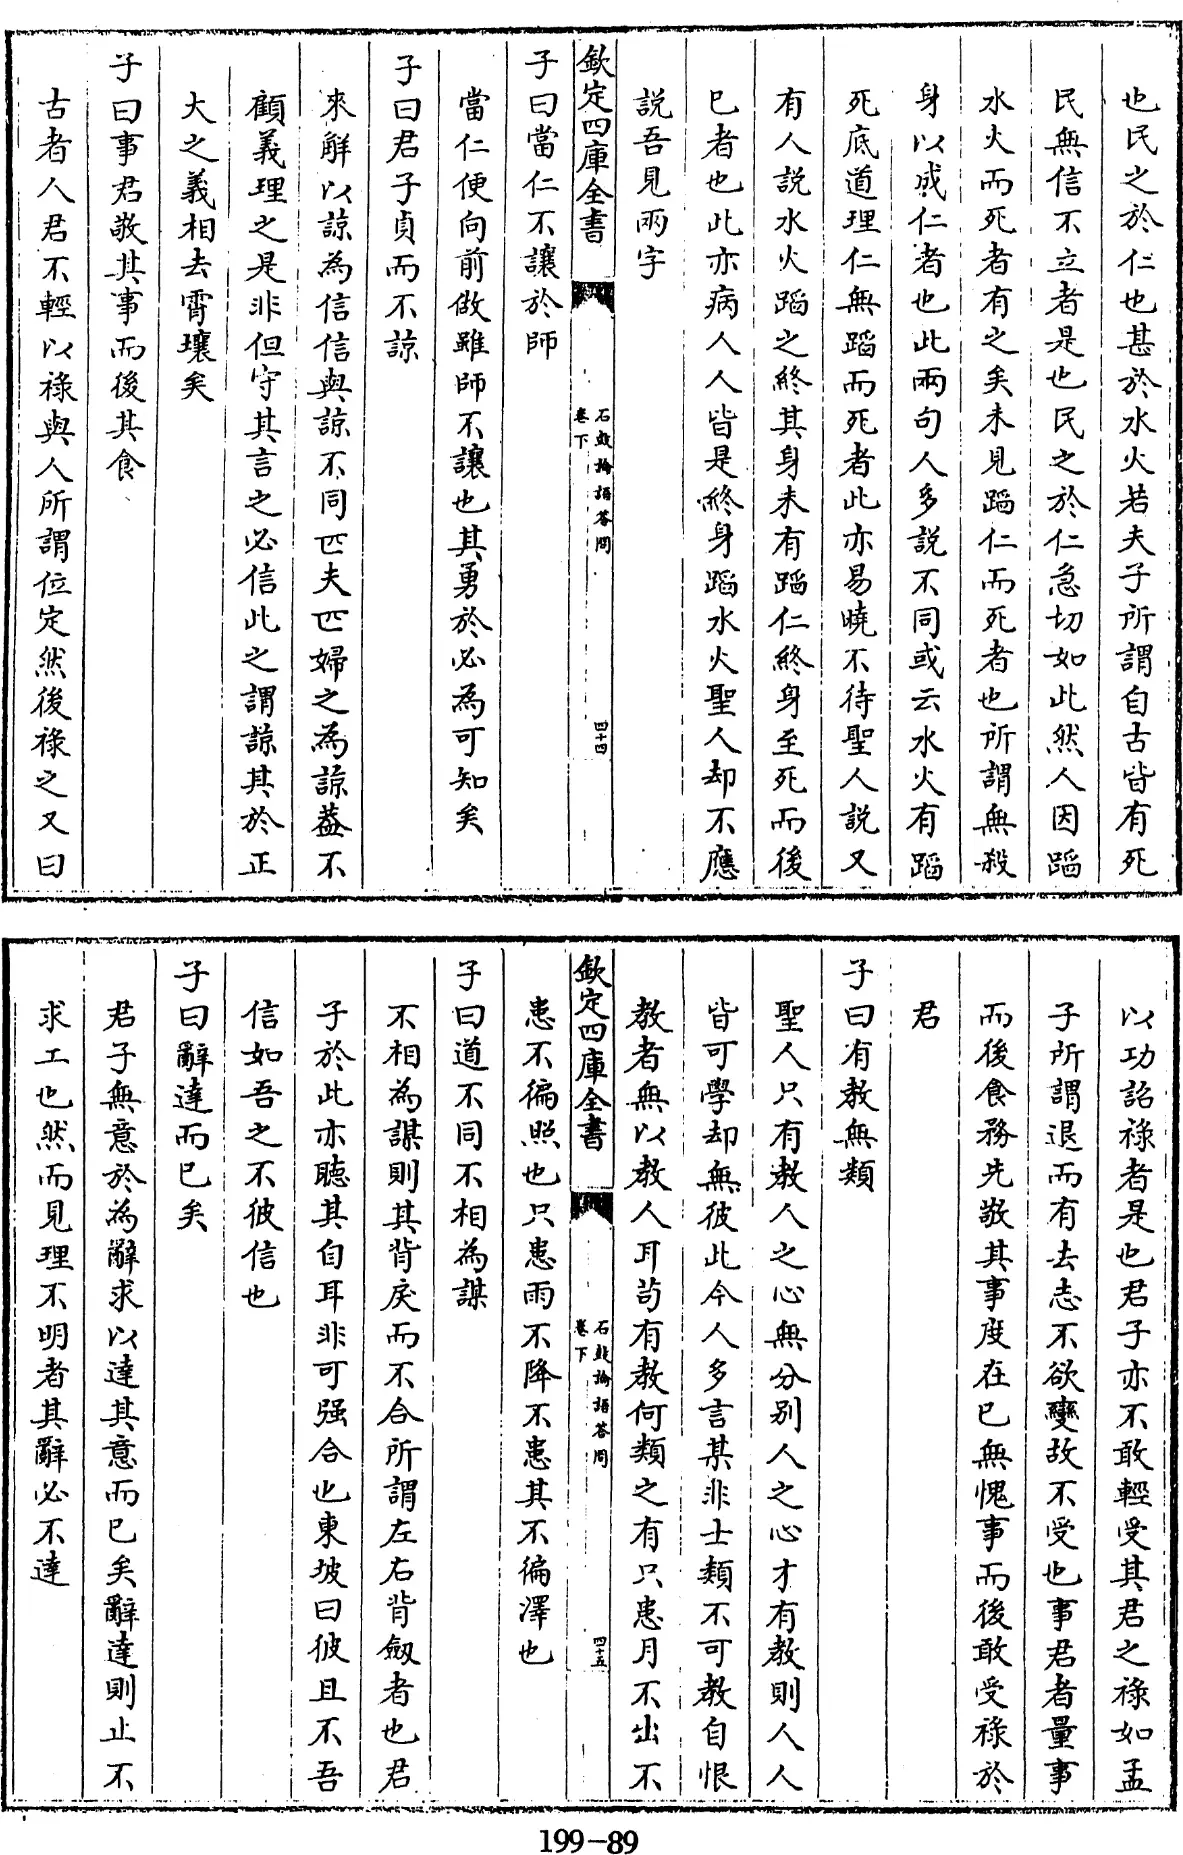 也民之於仁也甚於水火若夫子所謂自古皆有死
民無信不立者是也民之於仁急切如此然人因蹈
水火而死者有之矣未見蹈仁而死者也所謂無殺
身以成仁者也此兩句人多説不同或云水火有蹈
死底道理仁無蹈而死者此亦易曉不待聖人説又
有人説水火蹈之終其身未有蹈仁終身至死而後
已者也此亦病人人皆是終身蹈水火聖人却不應
説吾見兩字
欽定四庫全書
石鼓論語答問
卷下
四十四
子曰當仁不讓於師
當仁便向前做雖師不讓也其勇於必為可知矣
子曰君子貞而不諒
來解以諒為信信與諒不同匹夫匹婦之為諒葢不
顧義理之是非但守其言之必信此之謂諒其於正
大之義相去霄壤矣
子曰事君敬其事而後其食
古者人君不輕以祿與人所謂位定然後祿之又曰
以功詔祿者是也君子亦不敢輕受其君之祿如孟
子所謂退而有去志不欲變故不受也事君者量事
而後食務先敬其事度在已無愧事而後敢受祿於
君
子曰有教無類
聖人只有教人之心無分别人之心才有教則人人
皆可學却無彼此今人多言某非士類不可教自恨
教者無以教人耳苟有教何類之有只患月不出不
欽定四庫全書
石鼓論語答問
卷下
四十五
患不徧照也只患雨不降不患其不徧澤也
子曰道不同不相為謀
不相為謀則其背戾而不合所謂左右背劔者也君
子於此亦聽其自耳非可强合也東坡曰彼且不吾
信如吾之不彼信也
子曰辭達而已矣
君子無意於為辭求以達其意而已矣辭達則止不
求工也然而見理不明者其辭必不達
199-89